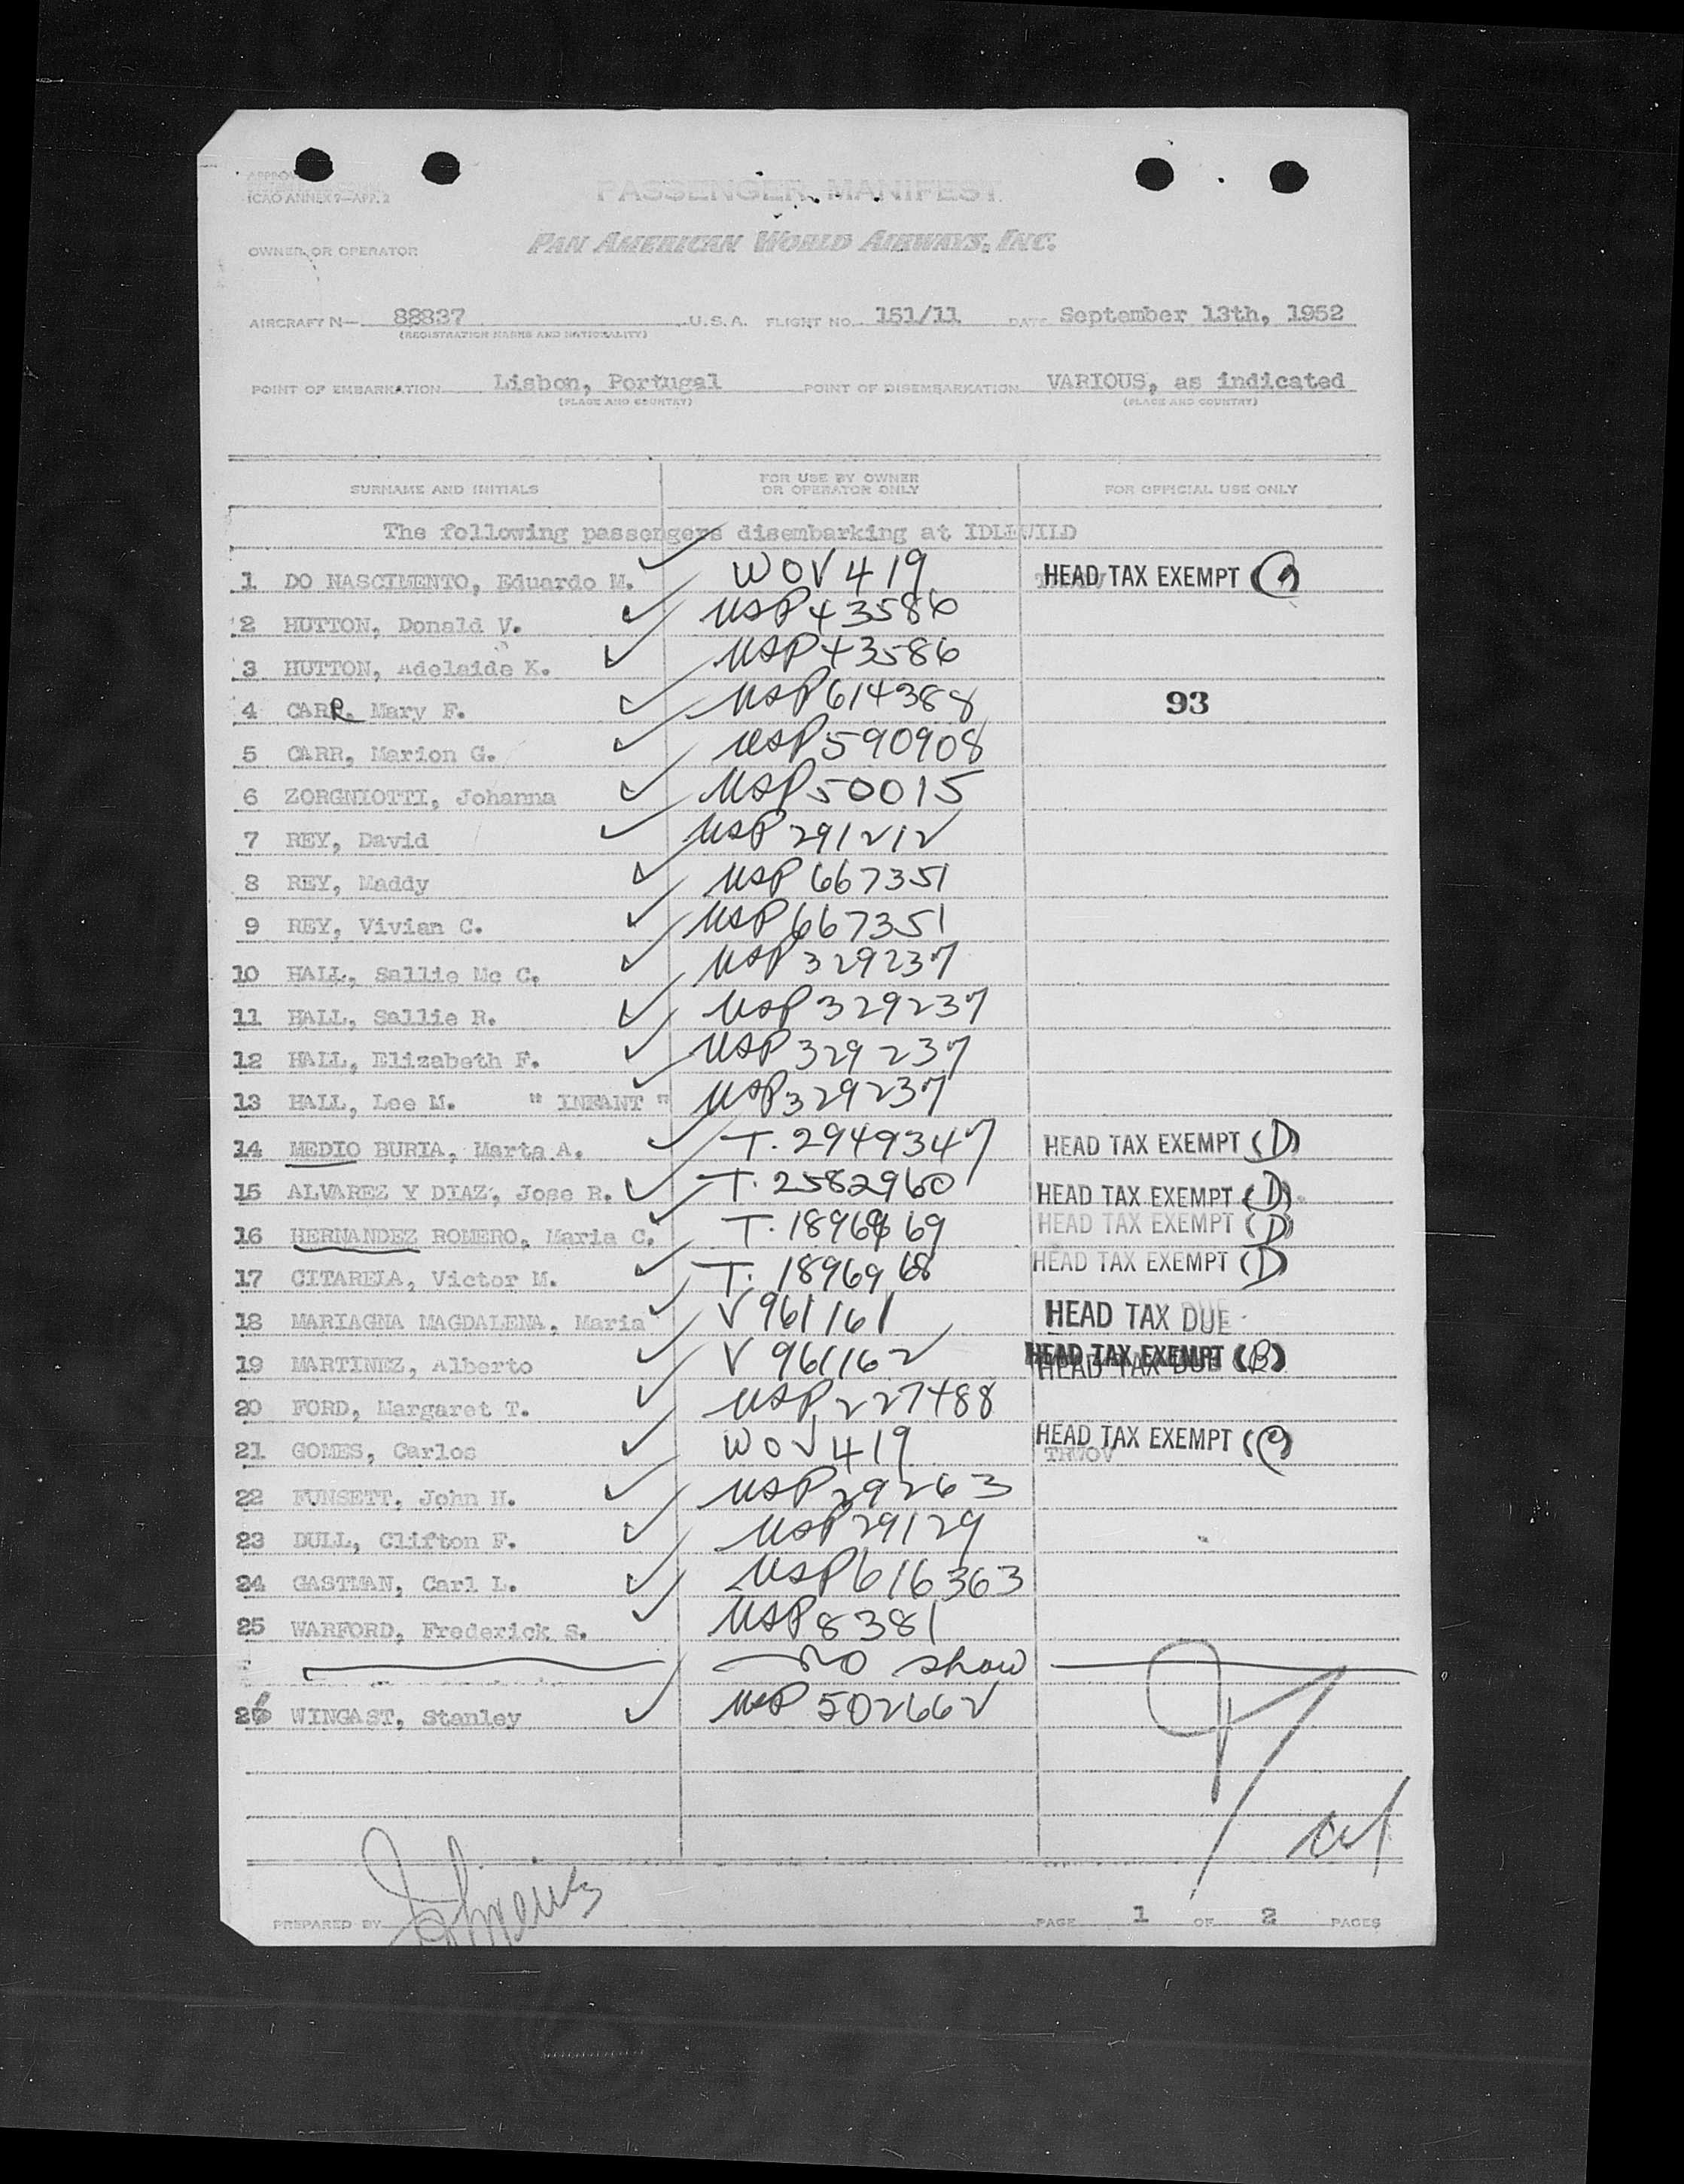 ICAO ANNEX 9—APP. 2
PASSENGER MANIFEST
OWNER OR OPERATOR
PAN AMERICAN WORLD AIRWAYS, INC.
AIRCRAFT N— 88837 U.S.A. FLIGHT NO. 151/11 DATE September 13th, 1952
(REGISTRATION MARKS AND NATIONALITY)
POINT OF EMBARKATION Lisbon, Portugal POINT OF DISEMBARKATION VARIOUS, as indicated
(PLACE AND COUNTRY) (PLACE AND COUNTRY)
SURNAME AND INITIALS FOR USE BY OWNER OR OPERATOR ONLY FOR OFFICIAL USE ONLY
The following passengers disembarking at IDLEWILD
1 DO NASCIMENTO, Eduardo M. WOV 419 HEAD TAX EXEMPT
2 HUTTON, Donald V. USP 43586
3 HUTTON, Adelaide K. USP 43586
4 CARR, Mary F. USP 614388 93
5 CARR, Marion G. USP 590908
6 ZORGNIOTTI, Johanna USP 50015
7 REY, David USP 291212
8 REY, Maddy USP 667351
9 REY, Vivian C. USP 667351
10 HALL, Sallie Mc C. USP 329237
11 HALL, Sallie R. USP 329237
12 HALL, Elizabeth F. USP 329237
13 HALL, Lee M. " INFANT " USP 329237
14 MEDIO BURIA, Marta A. T. 2949347 HEAD TAX EXEMPT (D)
15 ALVAREZ Y DIAZ, Jose R. T. 2582960 HEAD TAX EXEMPT (D)
16 HERNANDEZ ROMERO, Maria C. T. 1896969 HEAD TAX EXEMPT (D)
17 CITARELA, Victor M. T. 1896968 HEAD TAX EXEMPT (D)
18 MARIAGNA MAGDALENA, Maria V 961161 HEAD TAX DUE
19 MARTINEZ, Alberto V 961162 HEAD TAX EXEMPT (B)
HEAD TAX DUE
20 FORD, Margaret T. USP 227488
21 GOMES, Carlos WOV 419 HEAD TAX EXEMPT (C)
TRWOV
22 FUNSETT, John H. USP 29263
23 DULL, Clifton F. USP 29129
24 GASTMAN, Carl L. USP 616363
25 WARFORD, Frederick S. USP 8381
no show
26 WINGAST, Stanley USP 502662
PREPARED BY PAGE 1 OF 2 PAGES